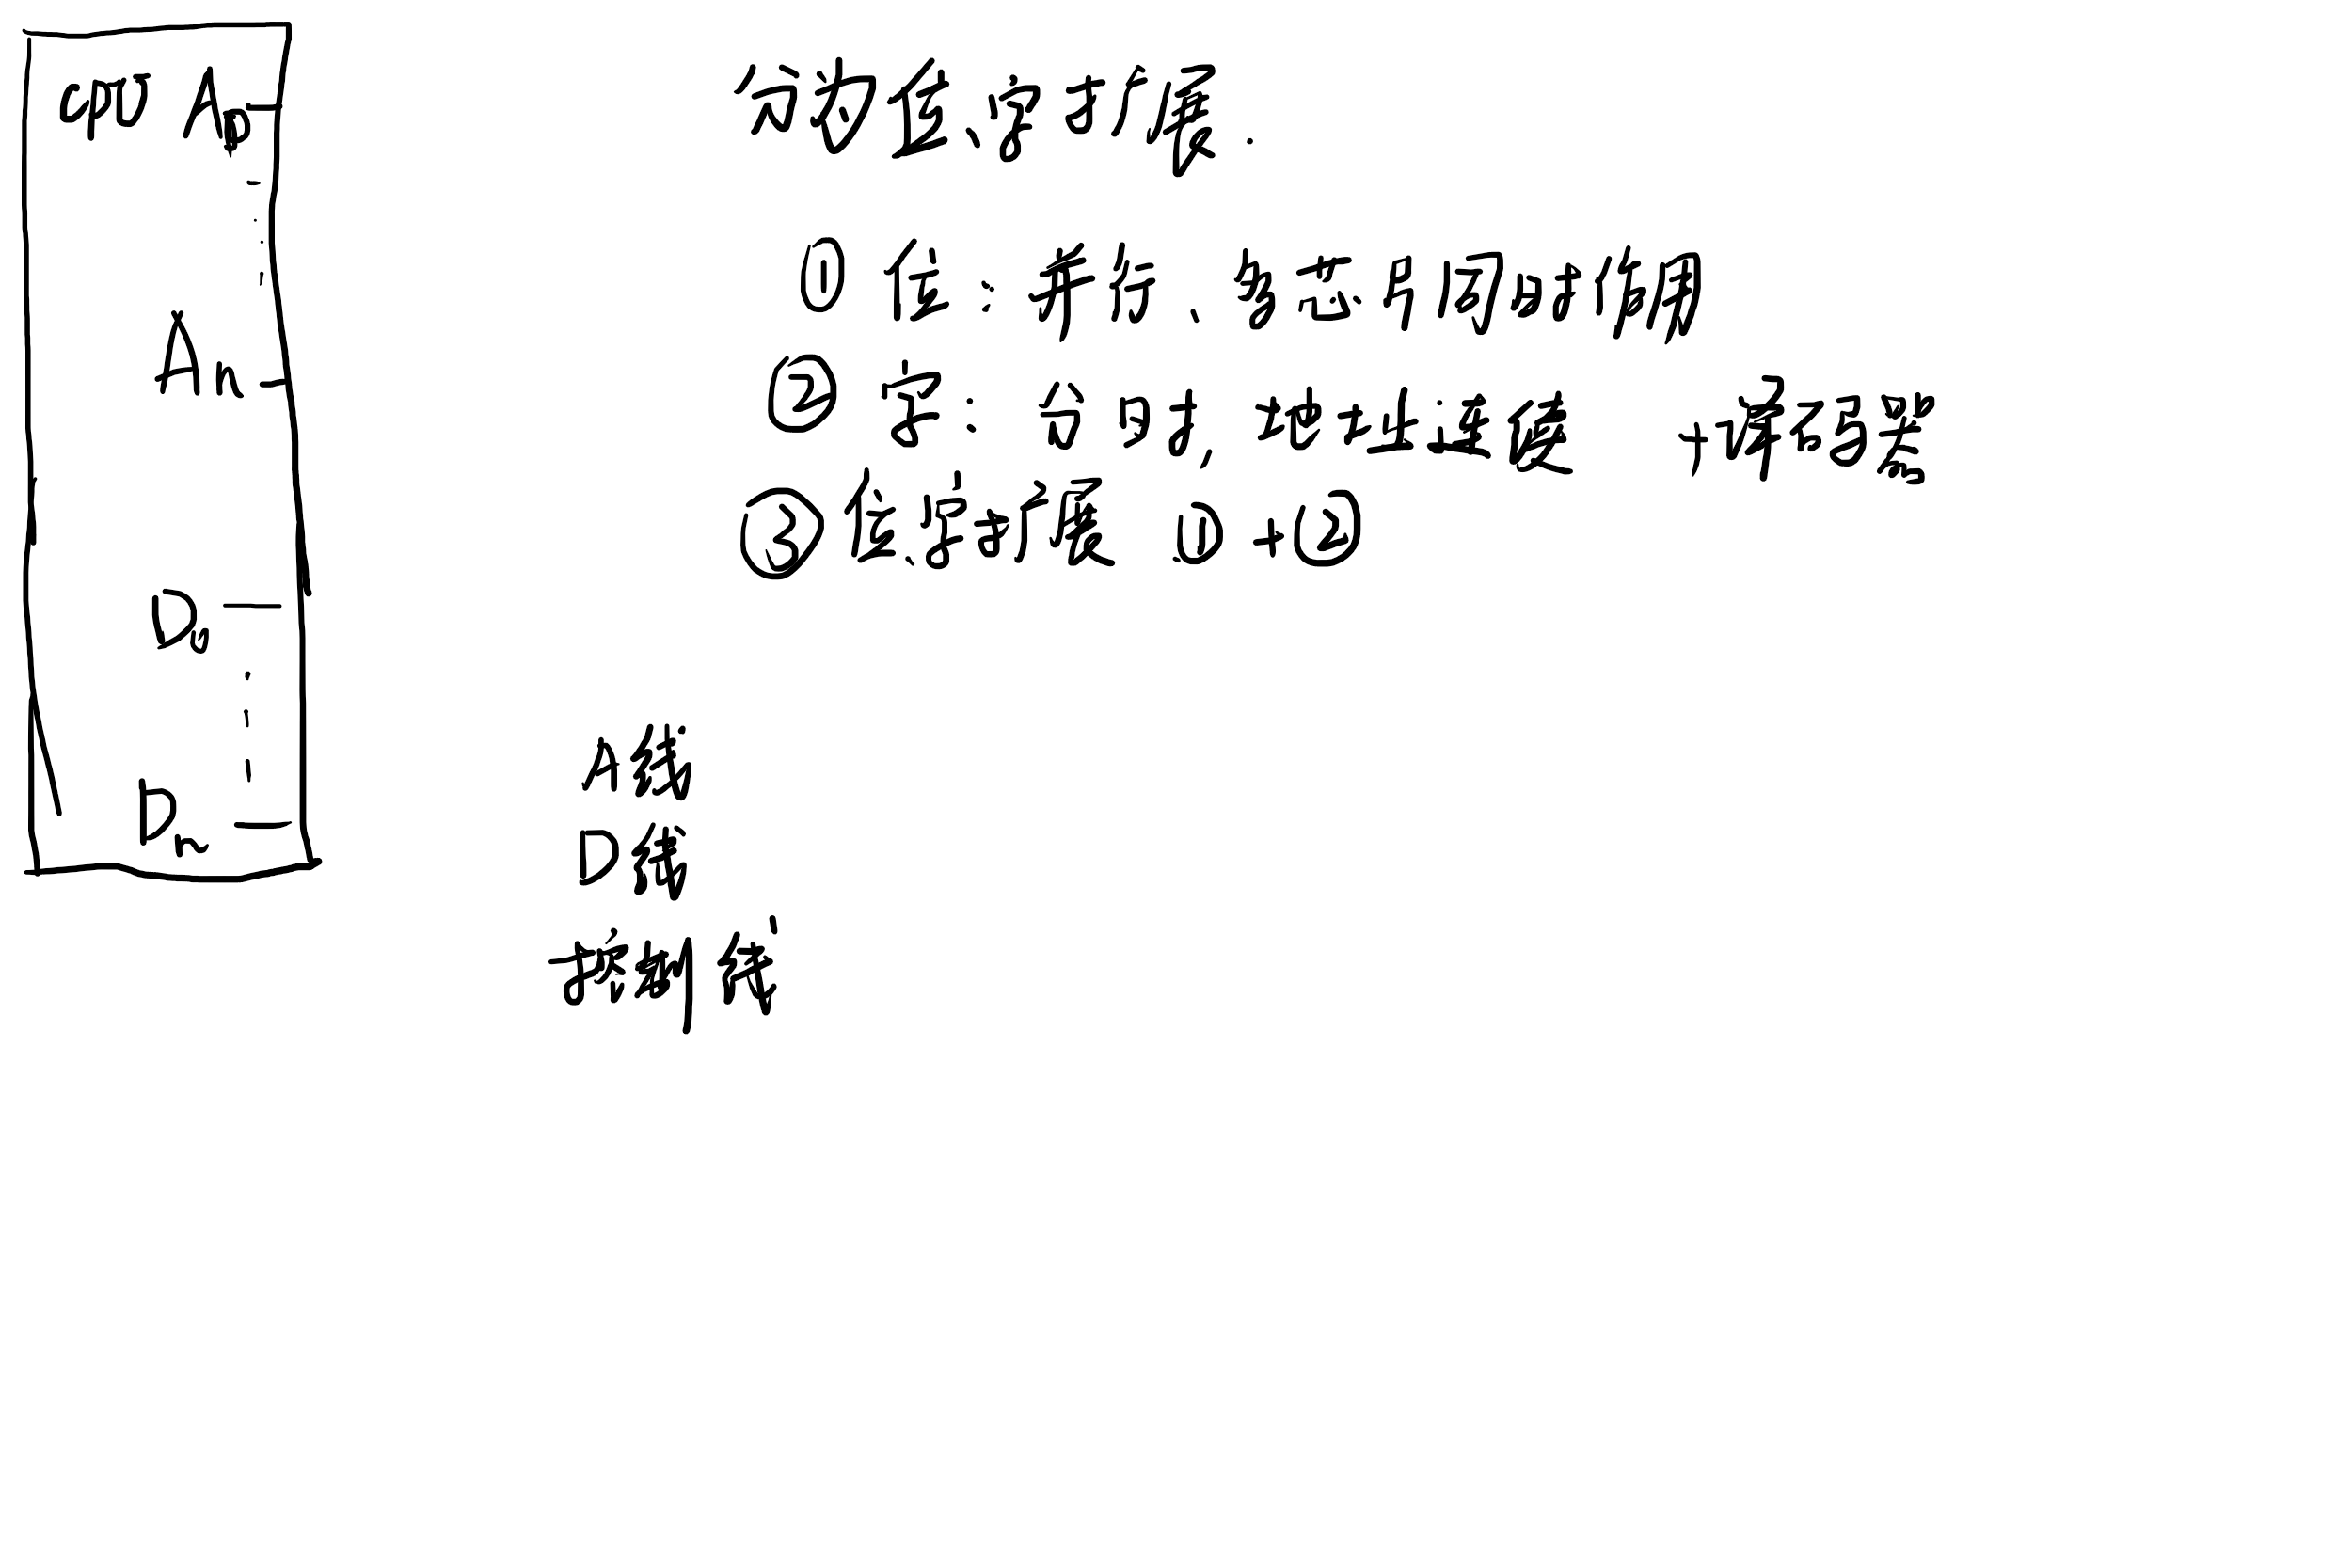 CPU A0
An
D0
Dn
分为位、字扩展.
① 位: 并行、多芯片同时作用
② 字: 分时, 地址连续 +译码器
③ 位、字扩展 ①+②
A线
D线
控制线